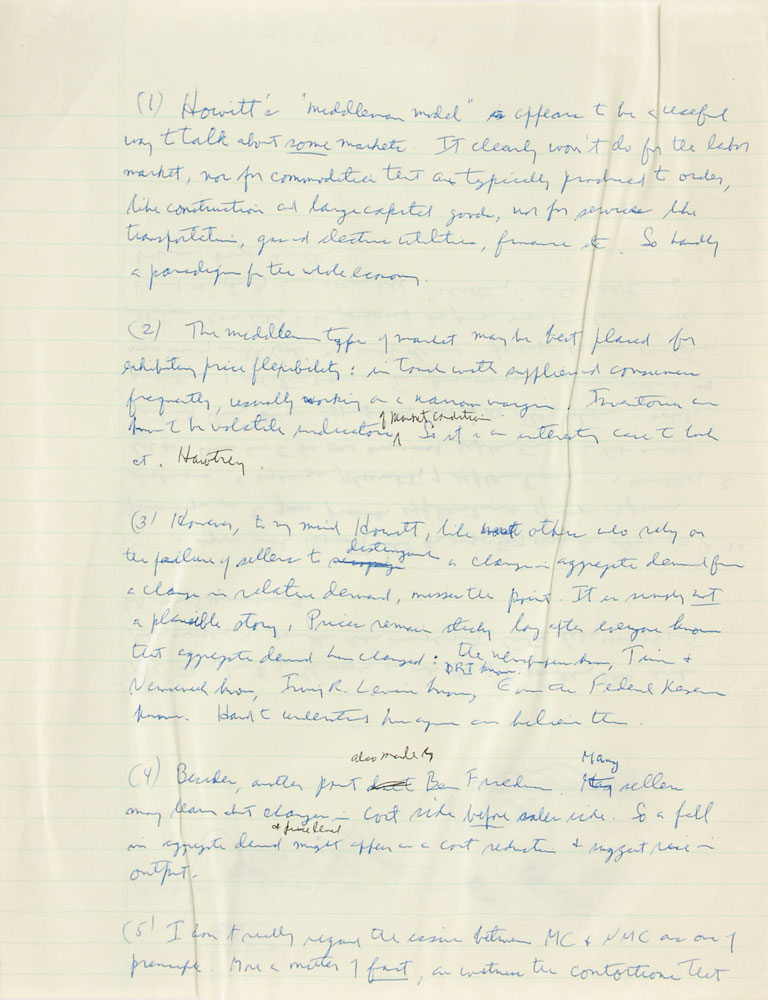 (1) Howitt's "middleman model" appears to be a useful
way to talk about some markets. It clearly won't do for the labor
market, nor for commodities that are typically produced to order,
like construction and large capital goods, nor for services like
transportation, gas and electric utilities, finance etc. So hardly
a paradigm for the whole economy.
(2) The middleman type of market may be best placed for
exhibiting price flexibility: in touch with suppliers and consumers
frequently, usually working on a narrow margin. Inventories can
of market conditions.
be volatile indicators So it is an interesting case to look
at. Hawtrey.
(3) However, to my mind Howitt, like others who rely on
distinguish
the failure of sellers to a change in aggregate demand from
a change in relative demand, misses the point. It is simply not
a plausible story. Prices remain sticky long after everyone knows
that aggregate demand has changed: the newspapers know, Time &
DRI knows.
Newsweek know, Irving R. Levine knows, Even the Federal Reserve
knows. Hard to understand how anyone can believe this.
also made by
(4) Besides, another point Ben Friedman. Many sellers
may learn about changes in cost side before sales side. So a fall
& price level
in aggregate demand might appear as a cost reduction & suggest raise in
output.
(5) I don't really regard the issue between MC & NMC as one of
principle. More a matter of fact, as witness the contortions that